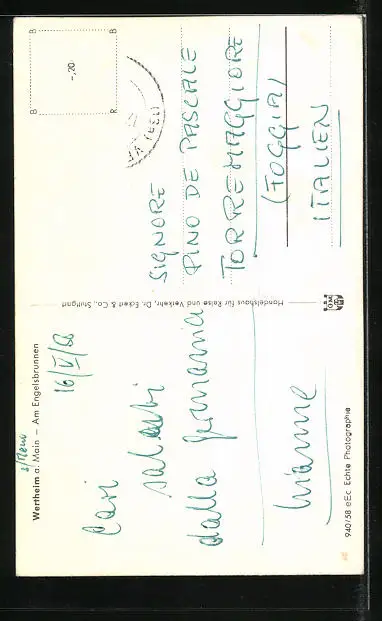 Wertheim a. Main – Am Engelsbrunnen
16/VI/68
Cari
saluti
dalla Germania
940/58 eEc Echte Photographie
Handelshaus für Reise und Verkehr, Dr. Eckert & Co., Stuttgart
B B
-,20
B R
SIGNORE
PINO DE PASCALE
TORREMAGGIORE
(FOGGIA)
ITALIEN